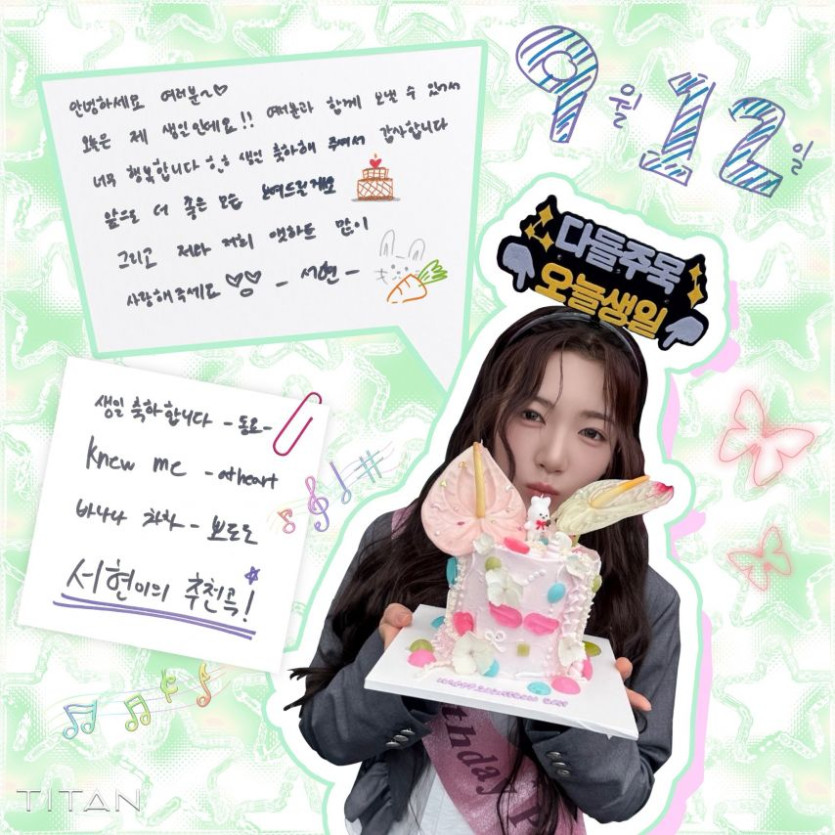 9월 12일
안녕하세요 여러분~♡
오늘은 제 생일인데요!! 여러분과 함께 보낼 수 있어서
너무 행복합니다 ㅎㅎ 생일 축하해 주셔서 감사합니다
앞으로 더 좋은 모습 보여드릴게요
그리고 저와 저희 앳하트 많이
사랑해주세요 ♡♡ - 서현 -
다들주목
오늘생일
생일 축하합니다 - 동요 -
Knew me - atheart
바나나 차차 - 뽀로로
서현이의 추천곡!
thday
TITAN